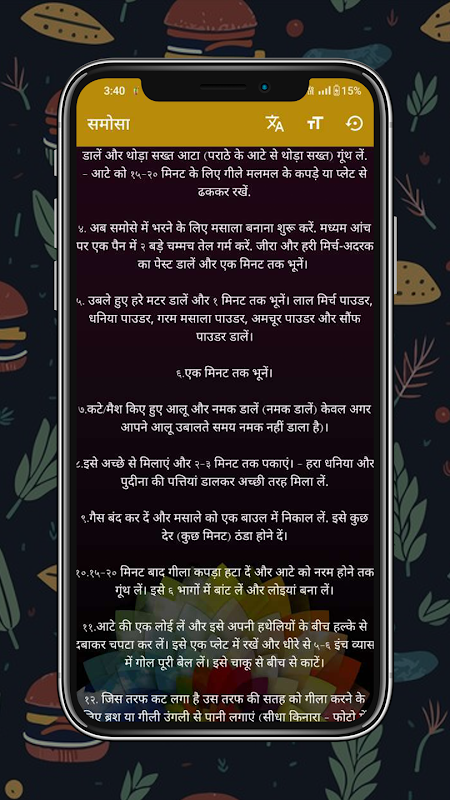 3:40 15%
समोसा
डालें और थोड़ा सख्त आटा (पराठे के आटे से थोड़ा सख्त) गूंथ लें.
- आटे को १५-२० मिनट के लिए गीले मलमल के कपड़े या प्लेट से
ढककर रखें.
४. अब समोसे में भरने के लिए मसाला बनाना शुरू करें. मध्यम आंच
पर एक पैन में २ बड़े चम्मच तेल गर्म करें. जीरा और हरी मिर्च-अदरक
का पेस्ट डालें और एक मिनट तक भूनें।
५. उबले हुए हरे मटर डालें और १ मिनट तक भूनें। लाल मिर्च पाउडर,
धनिया पाउडर, गरम मसाला पाउडर, अमचूर पाउडर और सौंफ
पाउडर डालें।
६.एक मिनट तक भूनें।
७.कटे/मैश किए हुए आलू और नमक डालें (नमक डालें) केवल अगर
आपने आलू उबालते समय नमक नहीं डाला है)।
८.इसे अच्छे से मिलाएं और २-३ मिनट तक पकाएं। - हरा धनिया और
पुदीना की पत्तियां डालकर अच्छी तरह मिला लें.
९.गैस बंद कर दें और मसाले को एक बाउल में निकाल लें. इसे कुछ
देर (कुछ मिनट) ठंडा होने दें।
१०.१५-२० मिनट बाद गीला कपड़ा हटा दें और आटे को नरम होने तक
गूंथ लें। इसे ६ भागों में बांट लें और लोइयां बना लें।
११.आटे की एक लोई लें और इसे अपनी हथेलियों के बीच हल्के से
दबाकर चपटा कर लें। इसे एक प्लेट में रखें और धीरे से ५-६ इंच व्यास
में गोल पूरी बेल लें। इसे चाकू से बीच से काटें।
१२. जिस तरफ कट लगा है उस तरफ की सतह को गीला करने के
लिए ब्रश या गीली उंगली से पानी लगाएं (सीधा किनारा - फोटो में